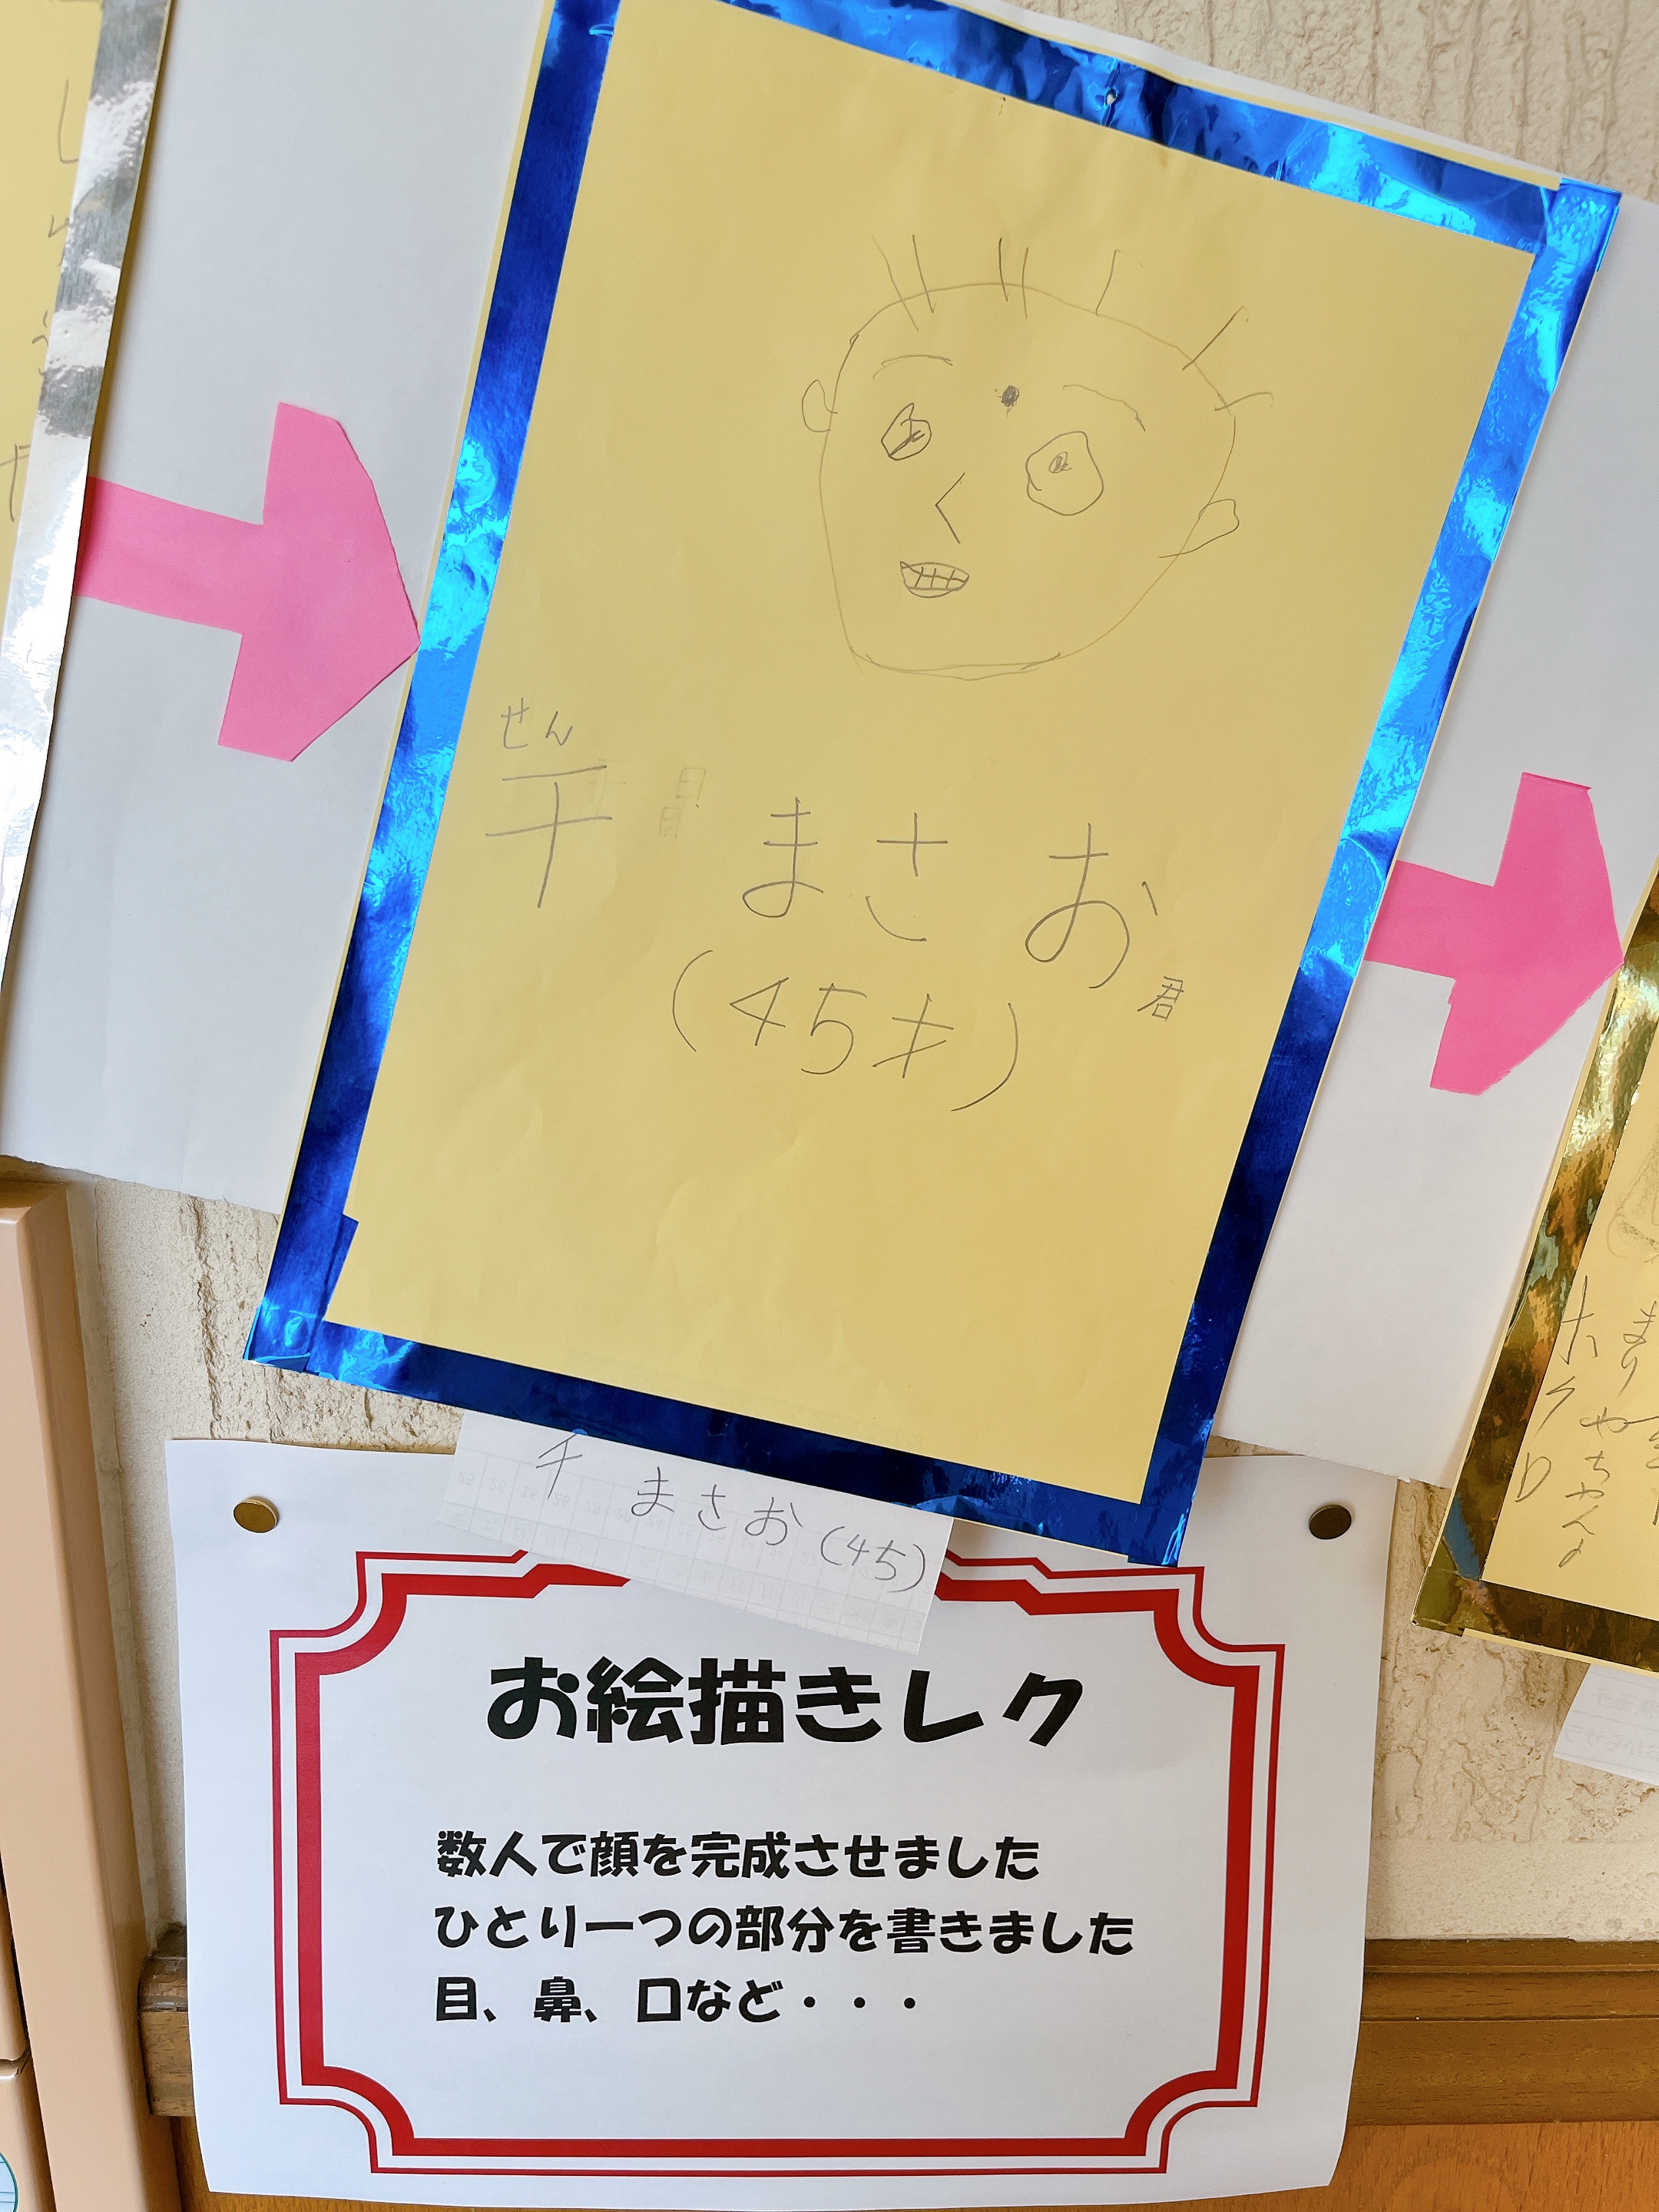 せん
千 まさお君
(45才)
千 まさお (45)
お絵描きレク
数人で顔を完成させました
ひとり一つの部分を書きました
目、鼻、口など・・・